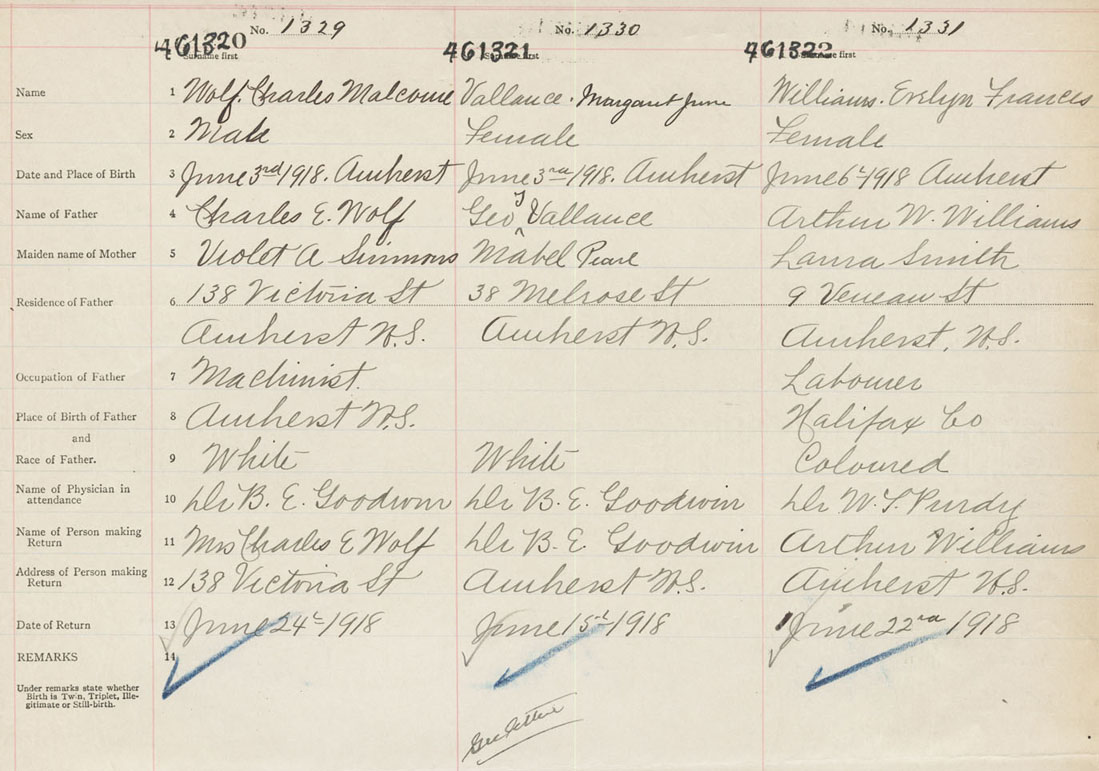 No. 1329 No. 1330 No. 1331
461320 461321 461322
Surname first Surname first Surname first
Name 1 Wolf. Charles Malcome Vallance. Margaret June Williams. Evelyn Frances
Sex 2 Male Female Female
Date and Place of Birth 3 June 3rd 1918. Amherst June 3rd 1918. Amherst June 6t 1918 Amherst
Name of Father 4 Charles E. Wolf Geo Vallance Arthur W. Williams
Maiden name of Mother 5 Violet A Simmons Mabel Laura Smith
Residence of Father 6. 138 Victoria St 38 Melrose St 9 Veneau St
Amherst N.S. Amherst N.S. Amherst, N.S.
Occupation of Father 7 Machinist. Labourer
Place of Birth of Father 8 Amherst N.S. Halifax Co
and
Race of Father. 9 White White Coloured
Name of Physician in
attendance 10 Dr B. E. Goodwin Dr B. E. Goodwin Dr W. T. Purdy
Name of Person making
Return 11 Mrs Charles E Wolf Dr B. E. Goodwin Arthur Williams
Address of Person making
Return 12 138 Victoria St Amherst N.S. Amherst N.S.
Date of Return 13 June 24t 1918 June 15t 1918 June 22nd 1918
REMARKS 14
Under remarks state whether
Birth is Twin, Triplet, Ille-
gitimate or Still-birth.
See letter